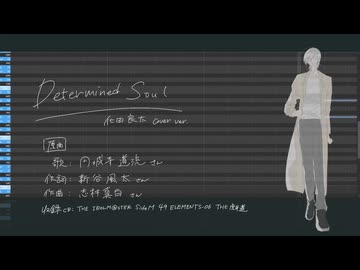 Determined Soul
佐田良太 cover ver.
原曲
歌：円城寺道流 さん
作詞：新谷風太 さん
作曲：志村真白 さん
収録CD：THE IDOLM@STER SideM 49 ELEMENTS-08 THE虎牙道